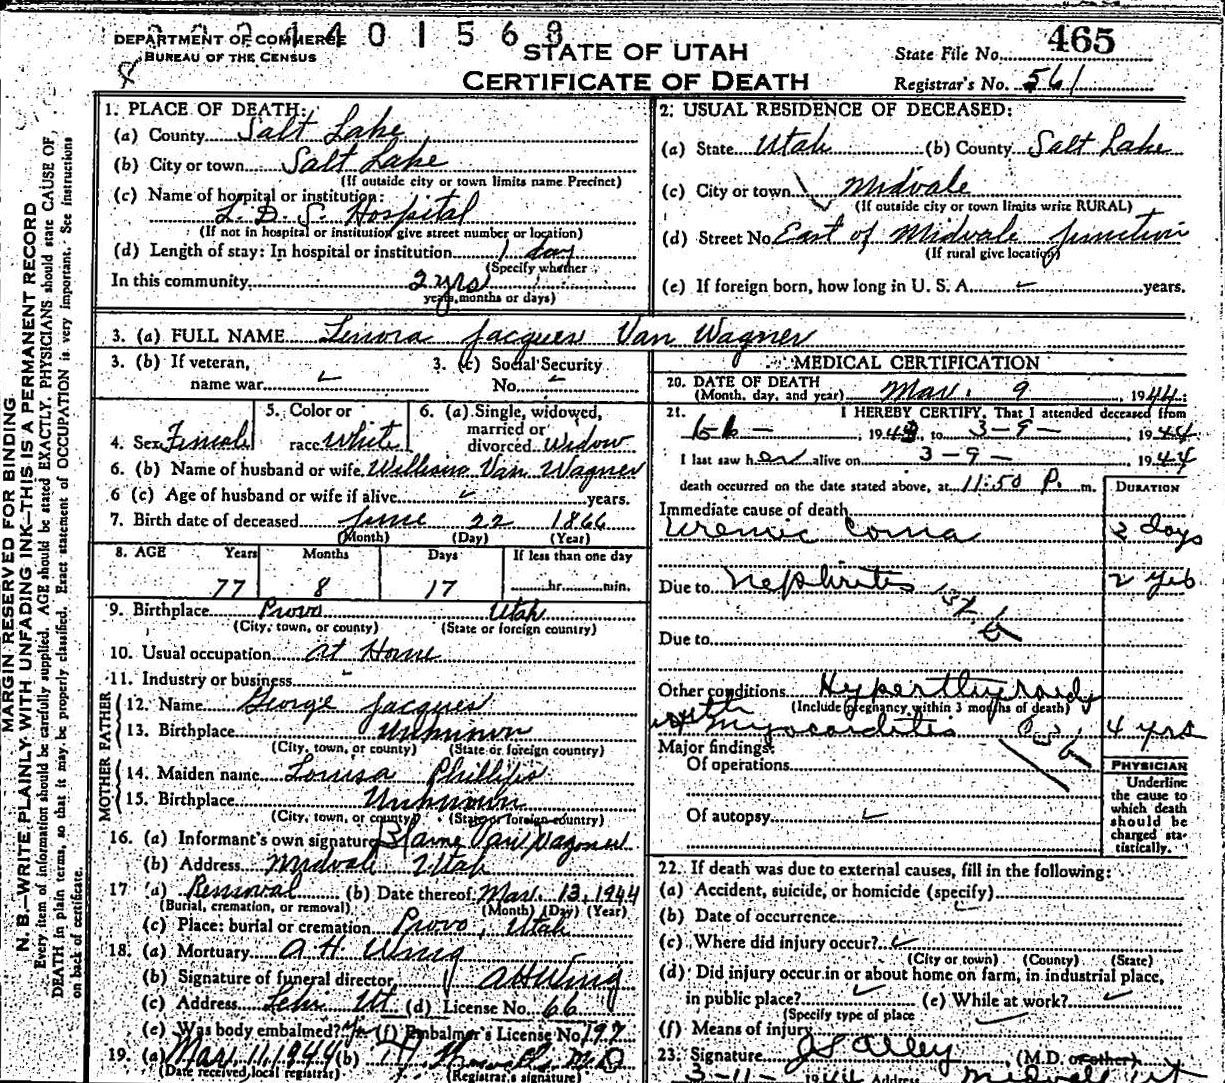 DEPARTMENT OF COMMERCE
BUREAU OF THE CENSUS
STATE OF UTAH
CERTIFICATE OF DEATH
State File No. 465
Registrar's No. 561
MARGIN RESERVED FOR BINDING.
N. B.—WRITE PLAINLY WITH UNFADING INK—THIS IS A PERMANENT RECORD
Every item of information should be carefully supplied. AGE should be stated EXACTLY. PHYSICIANS should state CAUSE OF
DEATH in plain terms, so that it may be properly classified. Exact statement of OCCUPATION is very important. See instructions
on back of certificate.
1. PLACE OF DEATH:
(a) County Salt Lake
(b) City or town Salt Lake
(If outside city or town limits name Precinct)
(c) Name of hospital or institution:
L. D. S. Hospital
(If not in hospital or institution give street number or location)
(d) Length of stay: In hospital or institution 1 day
(Specify whether
In this community 2 yrs
years, months or days)
2. USUAL RESIDENCE OF DECEASED:
(a) State Utah (b) County Salt Lake
(c) City or town Midvale
(If outside city or town limits write RURAL)
(d) Street No. East of Midvale Junction
(If rural give location)
(e) If foreign born, how long in U. S. A. years.
3. (a) FULL NAME Lenora Jacques Van Wagner
3. (b) If veteran,
name war
3. (c) Social Security
No.
4. Sex Female
5. Color or
race White
6. (a) Single, widowed,
married or
divorced Widow
6. (b) Name of husband or wife William Van Wagner
6 (c) Age of husband or wife if alive years.
7. Birth date of deceased June 22 1866
(Month) (Day) (Year)
8. AGE Years Months Days If less than one day
77 8 17 hr. min.
9. Birthplace Provo Utah
(City, town, or county) (State or foreign country)
10. Usual occupation at Home
11. Industry or business
FATHER
12. Name George Jacques
13. Birthplace Unknown
(City, town, or county) (State or foreign country)
MOTHER
14. Maiden name Louisa Phillips
15. Birthplace Unknown
(City, town, or county) (State or foreign country)
16. (a) Informant's own signature Blaine Van Wagoner
(b) Address Midvale Utah
17 (a) Removal (b) Date thereof Mar. 13, 1944
(Burial, cremation, or removal) (Month) (Day) (Year)
(c) Place: burial or cremation Provo, Utah
18. (a) Mortuary A H Wing
(b) Signature of funeral director A H Wing
(c) Address Lehi Ut (d) License No. 66
(e) Was body embalmed? (f) Embalmer's License No. 197
19. (a) Mar 11 1944 (b) M.D
(Date received local registrar) (Registrar's signature)
MEDICAL CERTIFICATION
20. DATE OF DEATH
(Month, day, and year) Mar. 9, 1944
21. I HEREBY CERTIFY, That I attended deceased from
, 1943, to 3-9- 1944
I last saw her alive on 3-9- 1944
death occurred on the date stated above, at 11:50 P. m.
DURATION
Immediate cause of death
Uremic Coma 2 days
Due to Nephritis 2 yrs
Due to
Other conditions Hyperthyroidy
(Include pregnancy within 3 months of death)
with Myocarditis 4 yrs
Major findings:
Of operations
Of autopsy
PHYSICIAN
Underline
the cause to
which death
should be
charged sta-
tistically.
22. If death was due to external causes, fill in the following:
(a) Accident, suicide, or homicide (specify)
(b) Date of occurrence
(c) Where did injury occur?
(City or town) (County) (State)
(d) Did injury occur in or about home on farm, in industrial place,
in public place? (e) While at work?
(Specify type of place
(f) Means of injury
23. Signature Alley (M.D. or other)
3-11- 1944 Address Midvale Ut